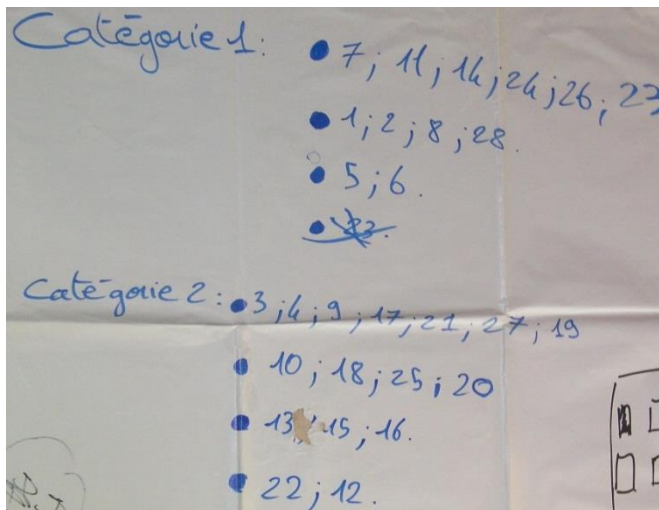 Catégorie 1:
• 7; 11; 14; 24; 26; 23
• 1; 2; 8; 28.
• 5; 6.
Catégorie 2:
• 3; 4; 9; 17; 21; 27; 19
• 10; 18; 25; 20
• 13; 15; 16.
• 22; 12.